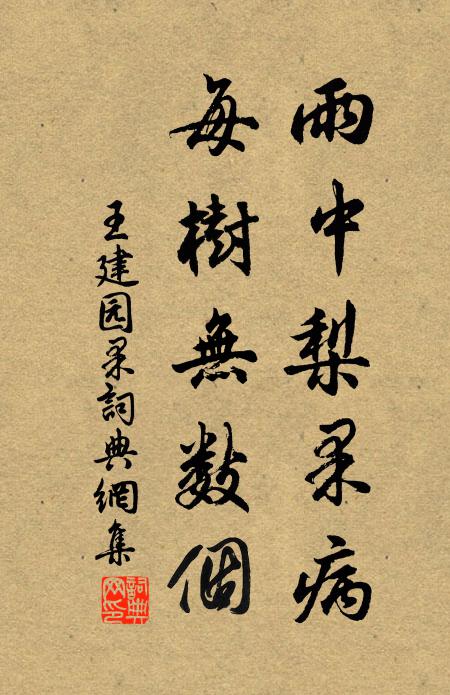 雨中梨果病
每樹無數個
王建园果詞典網集
詞典网印